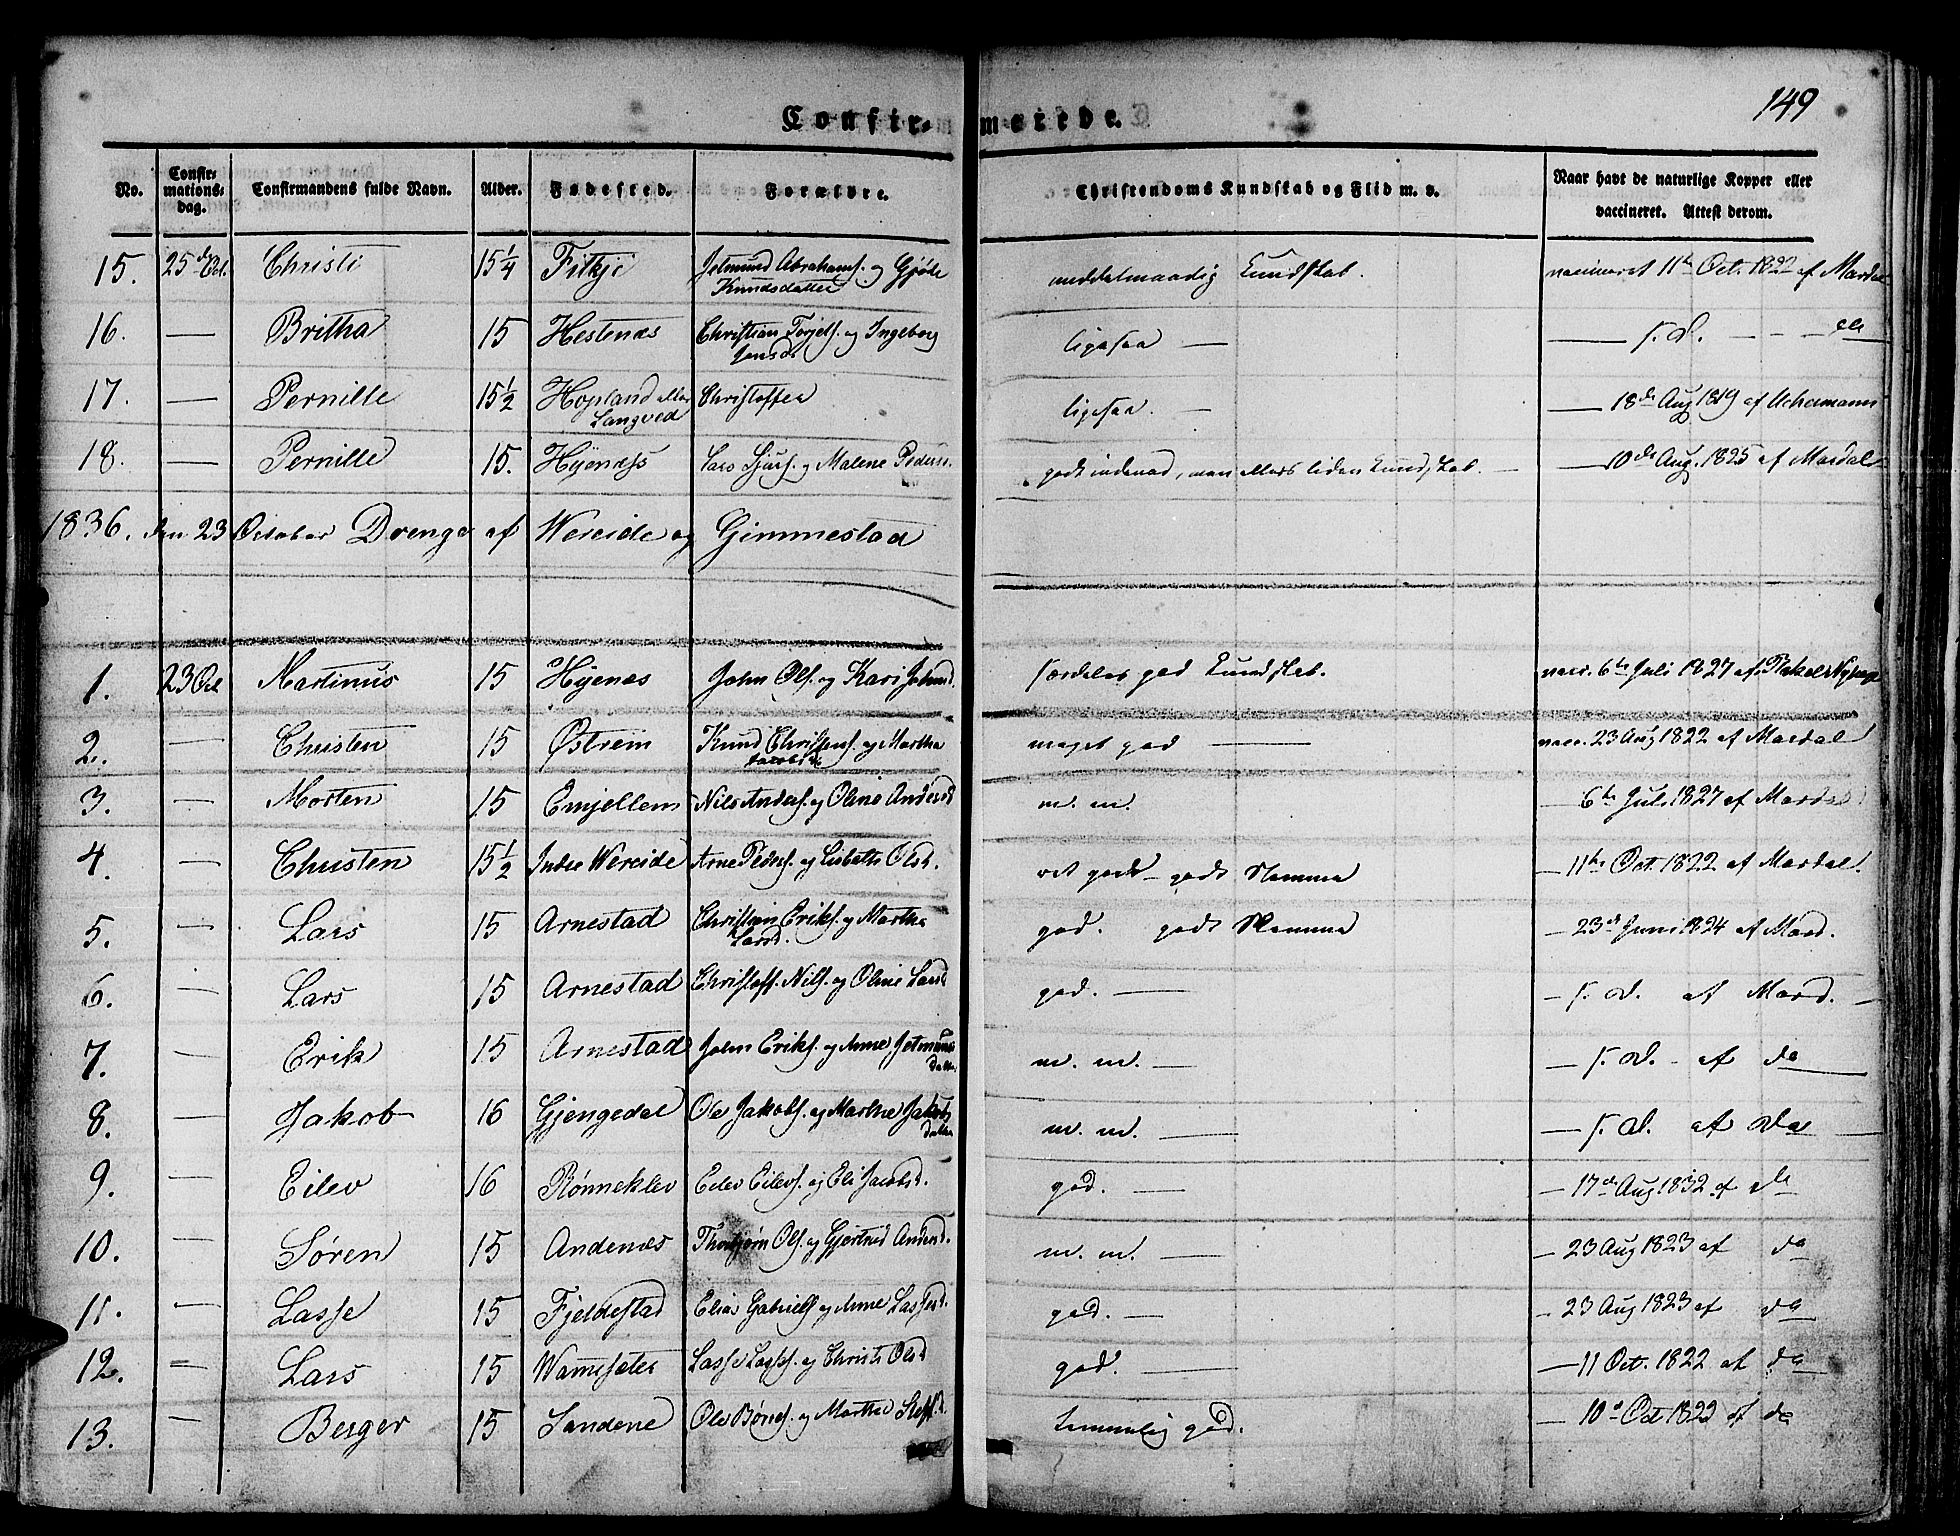 149
Confirmerede.
No. Confirmations-dag. Confirmandens fulde Navn. Alder. Fødested. Forældre. Christendoms Kundskab og Flid m. v. Naar havt de naturlige Kopper eller vaccineret. Attest derom.
15. 25de Oct. Christi 15 1/4 Fitkje Jetmund Abrahams. og Gjøle Knudsdatter middelmaadig Kundskab. vaccineret 11te Oct. 1822 af Mardal
16. — Britha 15 Hestenæs Christian Torjels. og Ingeborg Jensd. ligesaa — — s. d. — — de
17. — Pernille 15 1/2 Hopland eller Langved Christoffer ligesaa. — — 18de Aug 1819 af
18. — Pernille 15. Hyenæs Lars Sjurs. og Malene Peders. liden Kundskab. — — 10de Aug. 1825 af Mardal
1836. den 23 October Drenge af Wereide og Gimmestad
1. 23 Oct Martinus 15 Hyenæs John Ols. og Kari Johnd. særdeles god Kundskab. vacc. 6te Juli 1827 af
2. — Christen 15 Østrein Knud Christens. og Martha Jacobsd. meget god — vacc. 23 Aug 1822 af Mardal
3. — Morten 15 Emjellem Nils Anders. og Oline Andersd m. m. — 6te Juli 1827 af Mardal
4. — Christen 15 1/2 Indre Wereide Arne Peders. og Lisbeth Olsd. ret godt — godt Nemme — 11te Oct. 1822 af Mardal
5. — Lars 15 Arnestad Christian Eriks. og Martha Larsd. god. godt Nemme — 23de Juni 1824 af Mard.
6. — Lars 15 Arnestad Christoff. Nils. og Oline Larsd god. — — s. d. af Mard. —
7. — Erik 15 Arnestad John Eriks. og Anne Jetmunds datter m. m. — — s. d. - af do
8. — Jakob 16 Gjengedal Ole Jakobs. og Marthe Jakobs datter m. m. — — s. d. af do —
9. — Eilev 16 Rønneklev Eilev Eilevs. og Eli Jacobsd. god. — — 17de Aug 1832 af do
10. — Søren 15 Andenæs Thorbjørn Ols. og Gjertrud Andersd. m. m. — — 23 Aug 1823 af do
11. — Lasse 15 Fjeldestad Elias Gabriels. og Anne Lassesd. god. — — 23 Aug 1823 af do
12. — Lars 15 Wamesæter Lasse Lasses. og Christi Olsd god. — — 11 Oct. 1822 af do
13. — Berger 15 Sandene Ole Bønes. og Marthe Steff.d. temmelig god. — 10de Oct 1823 af do